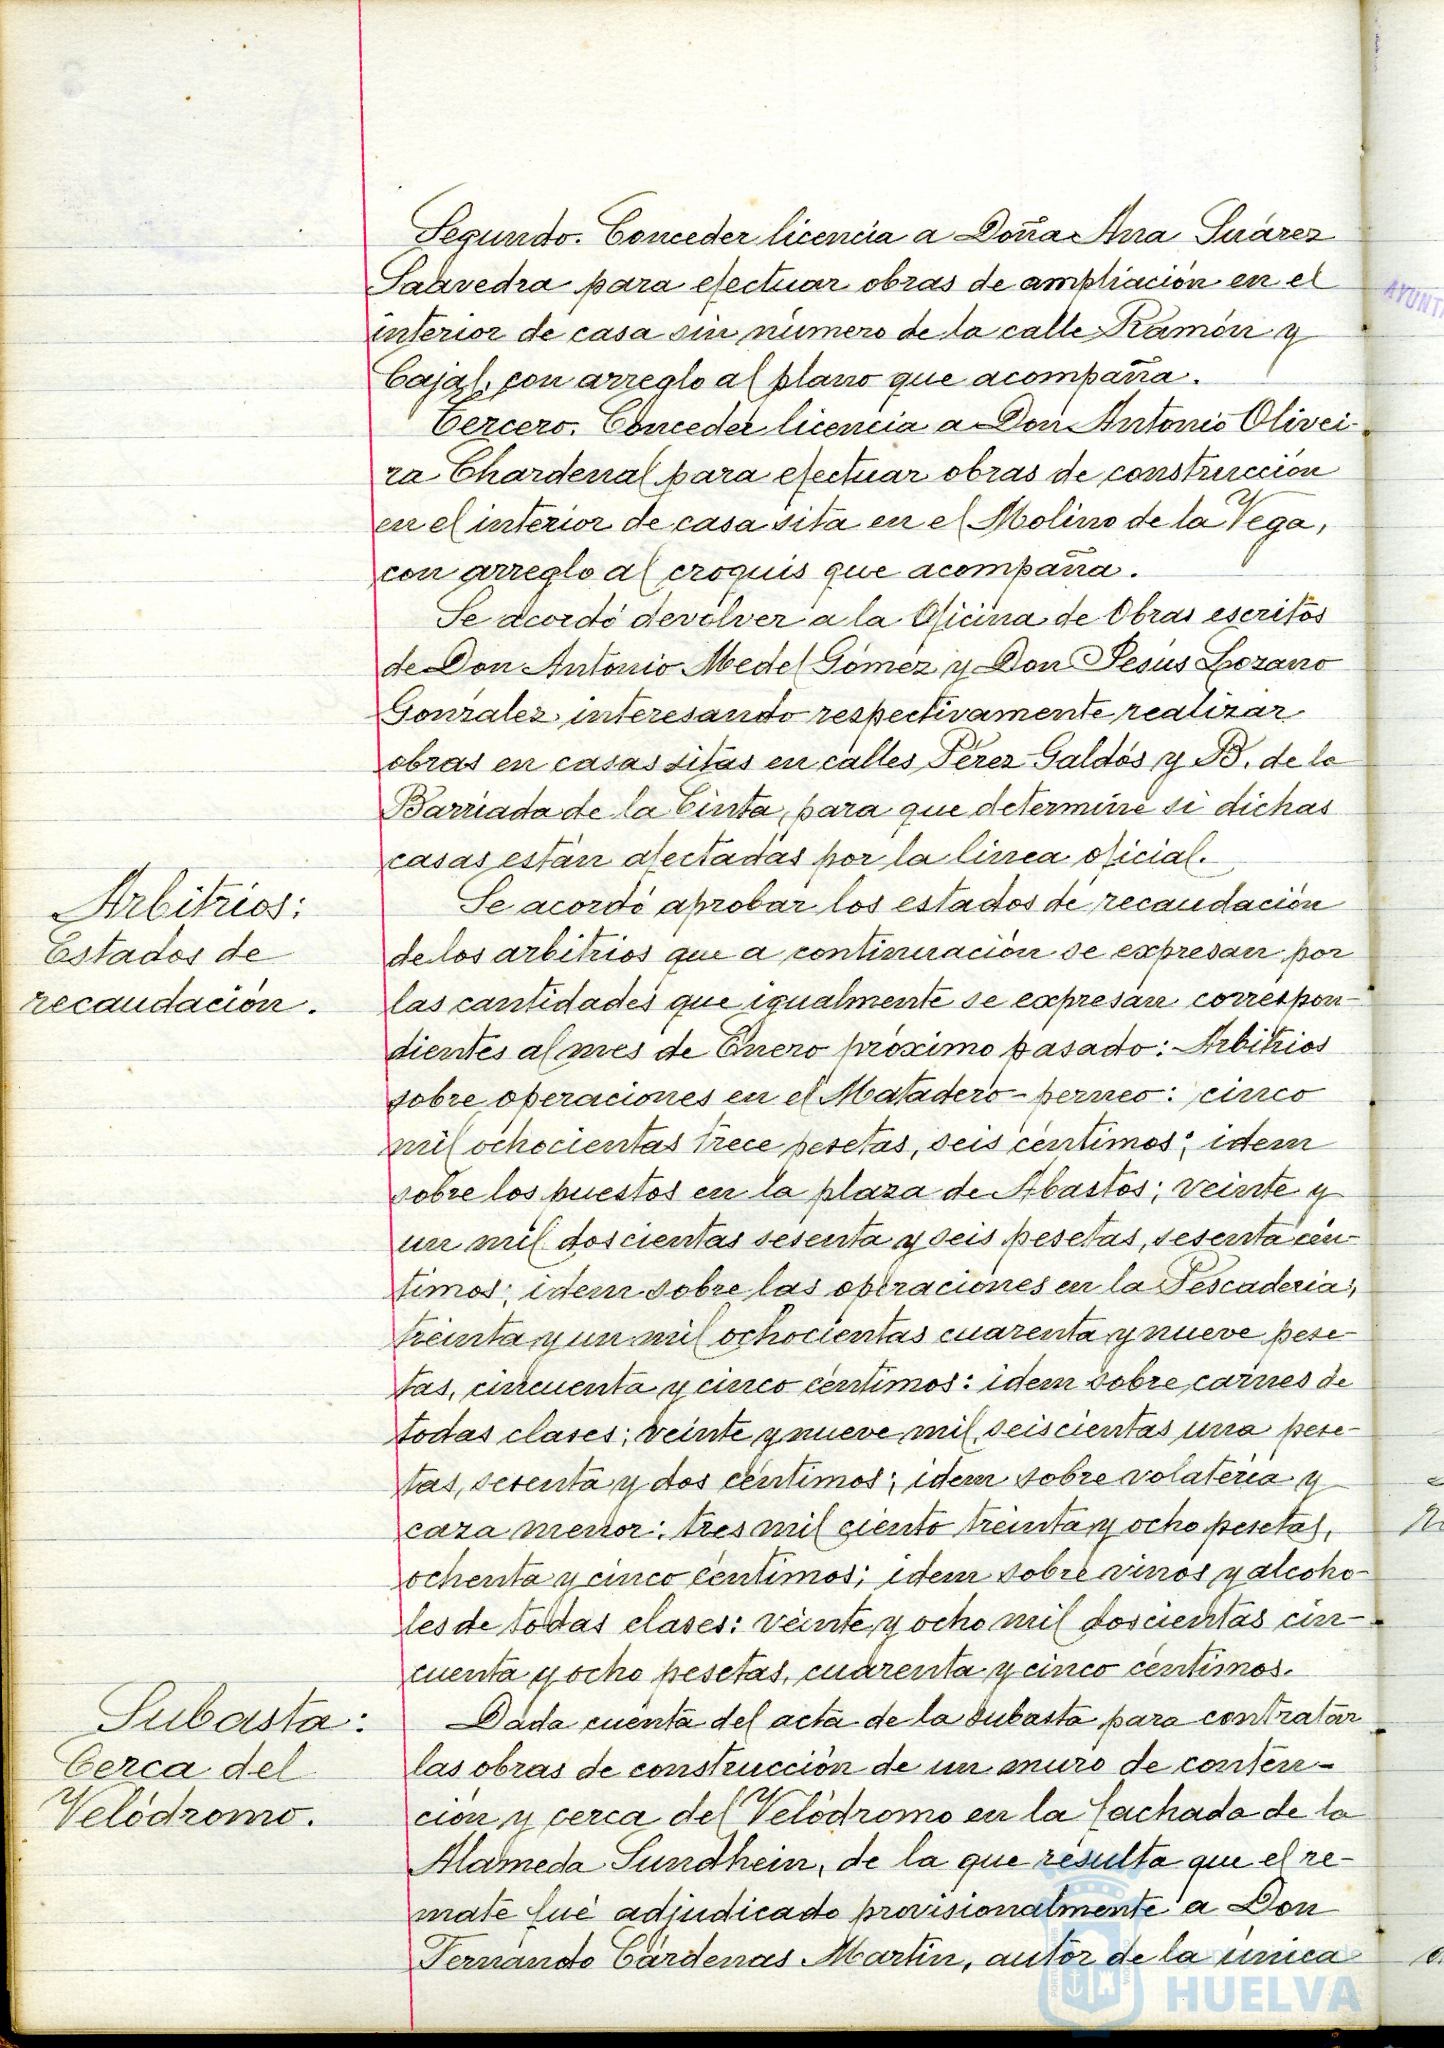 Segundo. Conceder licencia a Doña Ana Suárez
Saavedra para efectuar obras de ampliación en el
interior de casa sin número de la calle Ramón y
Cajal, con arreglo al plano que acompaña.
Tercero. Conceder licencia a Don Antonio Olivei-
ra Chardenal para efectuar obras de construcción
en el interior de casa sita en el Molino de la Vega,
con arreglo al croquis que acompaña.
Se acordó devolver a la Oficina de Obras escritos
de Don Antonio Medel Gómez y Don Jesús Lozano
González interesando respectivamente realizar
obras en casas sitas en calles Pérez Galdós y B. de la
Barriada de la Cinta, para que determine si dichas
casas están afectadas por la linea oficial.
Arbitrios:
Estados de
recaudación.
Se acordó aprobar los estados de recaudación
de los arbitrios que a continuación se expresan por
las cantidades que igualmente se expresan correspon-
dientes al mes de Enero próximo pasado: Arbitrios
sobre operaciones en el Matadero-perneo: cinco
mil ochocientas trece pesetas, seis céntimos; idem
sobre los puestos en la plaza de Abastos; veinte y
un mil doscientas sesenta y seis pesetas, sesenta cén-
timos; idem sobre las operaciones en la Pescaderia;
treinta y un mil ochocientas cuarenta y nueve pese-
tas, cincuenta y cinco céntimos: idem sobre carnes de
todas clases; veinte y nueve mil seiscientas una pese-
tas, sesenta y dos céntimos; idem sobre volateria y
caza menor: tres mil ciento treinta y ocho pesetas,
ochenta y cinco céntimos; idem sobre vinos y alcoho-
les de todas clases: veinte y ocho mil doscientas cin-
cuenta y ocho pesetas, cuarenta y cinco céntimos.
Subasta:
Cerca del
Velódromo.
Dada cuenta del acta de la subasta para contratar
las obras de construcción de un muro de conten-
ción y cerca del Velódromo en la fachada de la
Alameda Sundhein, de la que resulta que el re-
mate fué adjudicado provisionalmente a Don
Fernando Cárdenas Martín, autor de la única
HUELVA
AYUNT